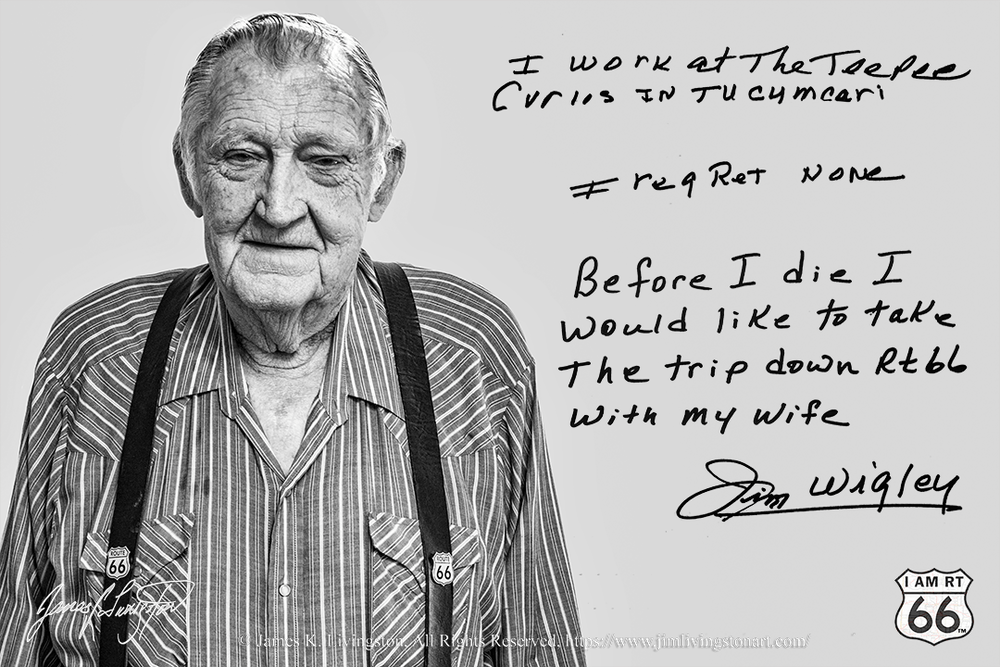 I work at The TeePee
Curios IN TUCUMCari
I regRet NONE
Before I die I
would like to take
The trip down Rt66
with my wife
Jim Wigley
ROUTE
66
ROUTE
66
I AM RT
66
TM
James K. Livingston
© James K. Livingston. All Rights Reserved. https://www.jimlivingstonart.com/